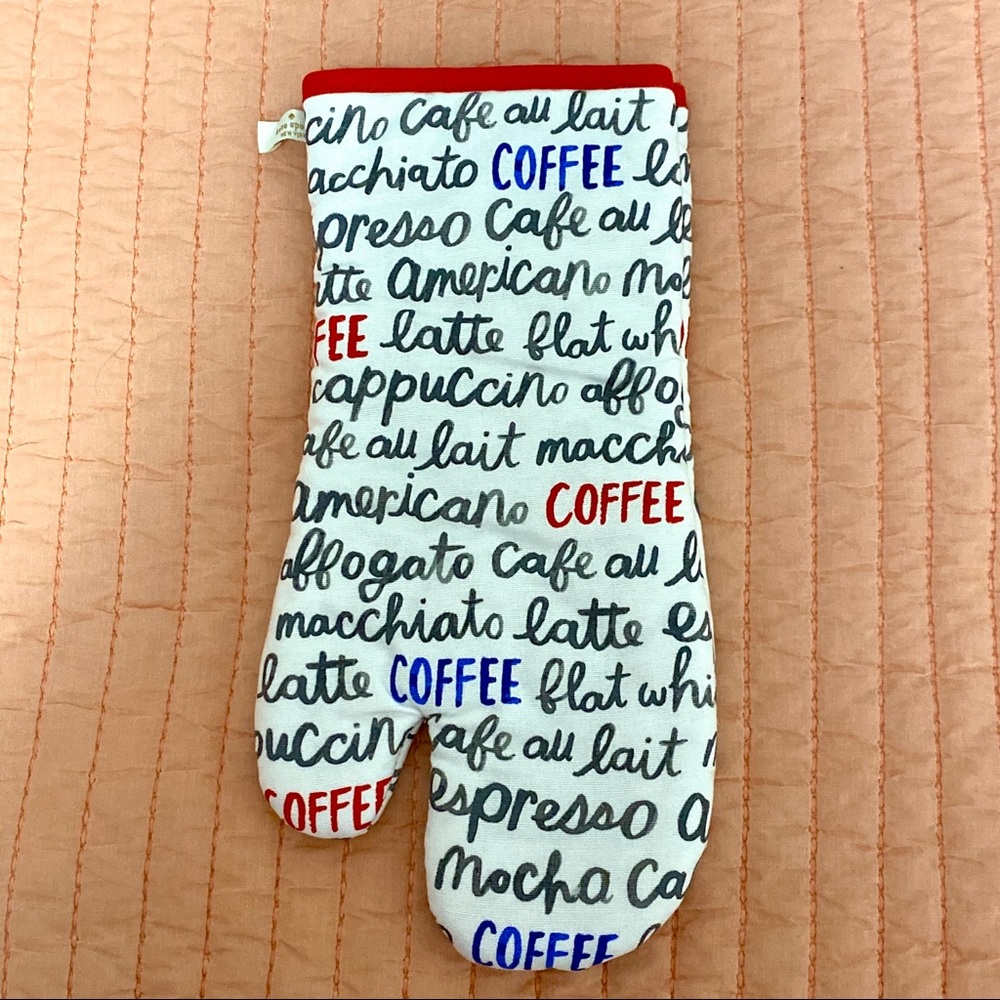 cino cafe au lait
acchiato COFFEE
presso cafe au
tte americano
FEE latte flat wh
cappuccino affo
afe au lait macch
americano COFFEE
affogato cafe au l
macchiato latte es
latte COFFEE flat whi
puccin cafe au lait
COFFEE espresso a
mocha ca
COFFEE
NEW YORK